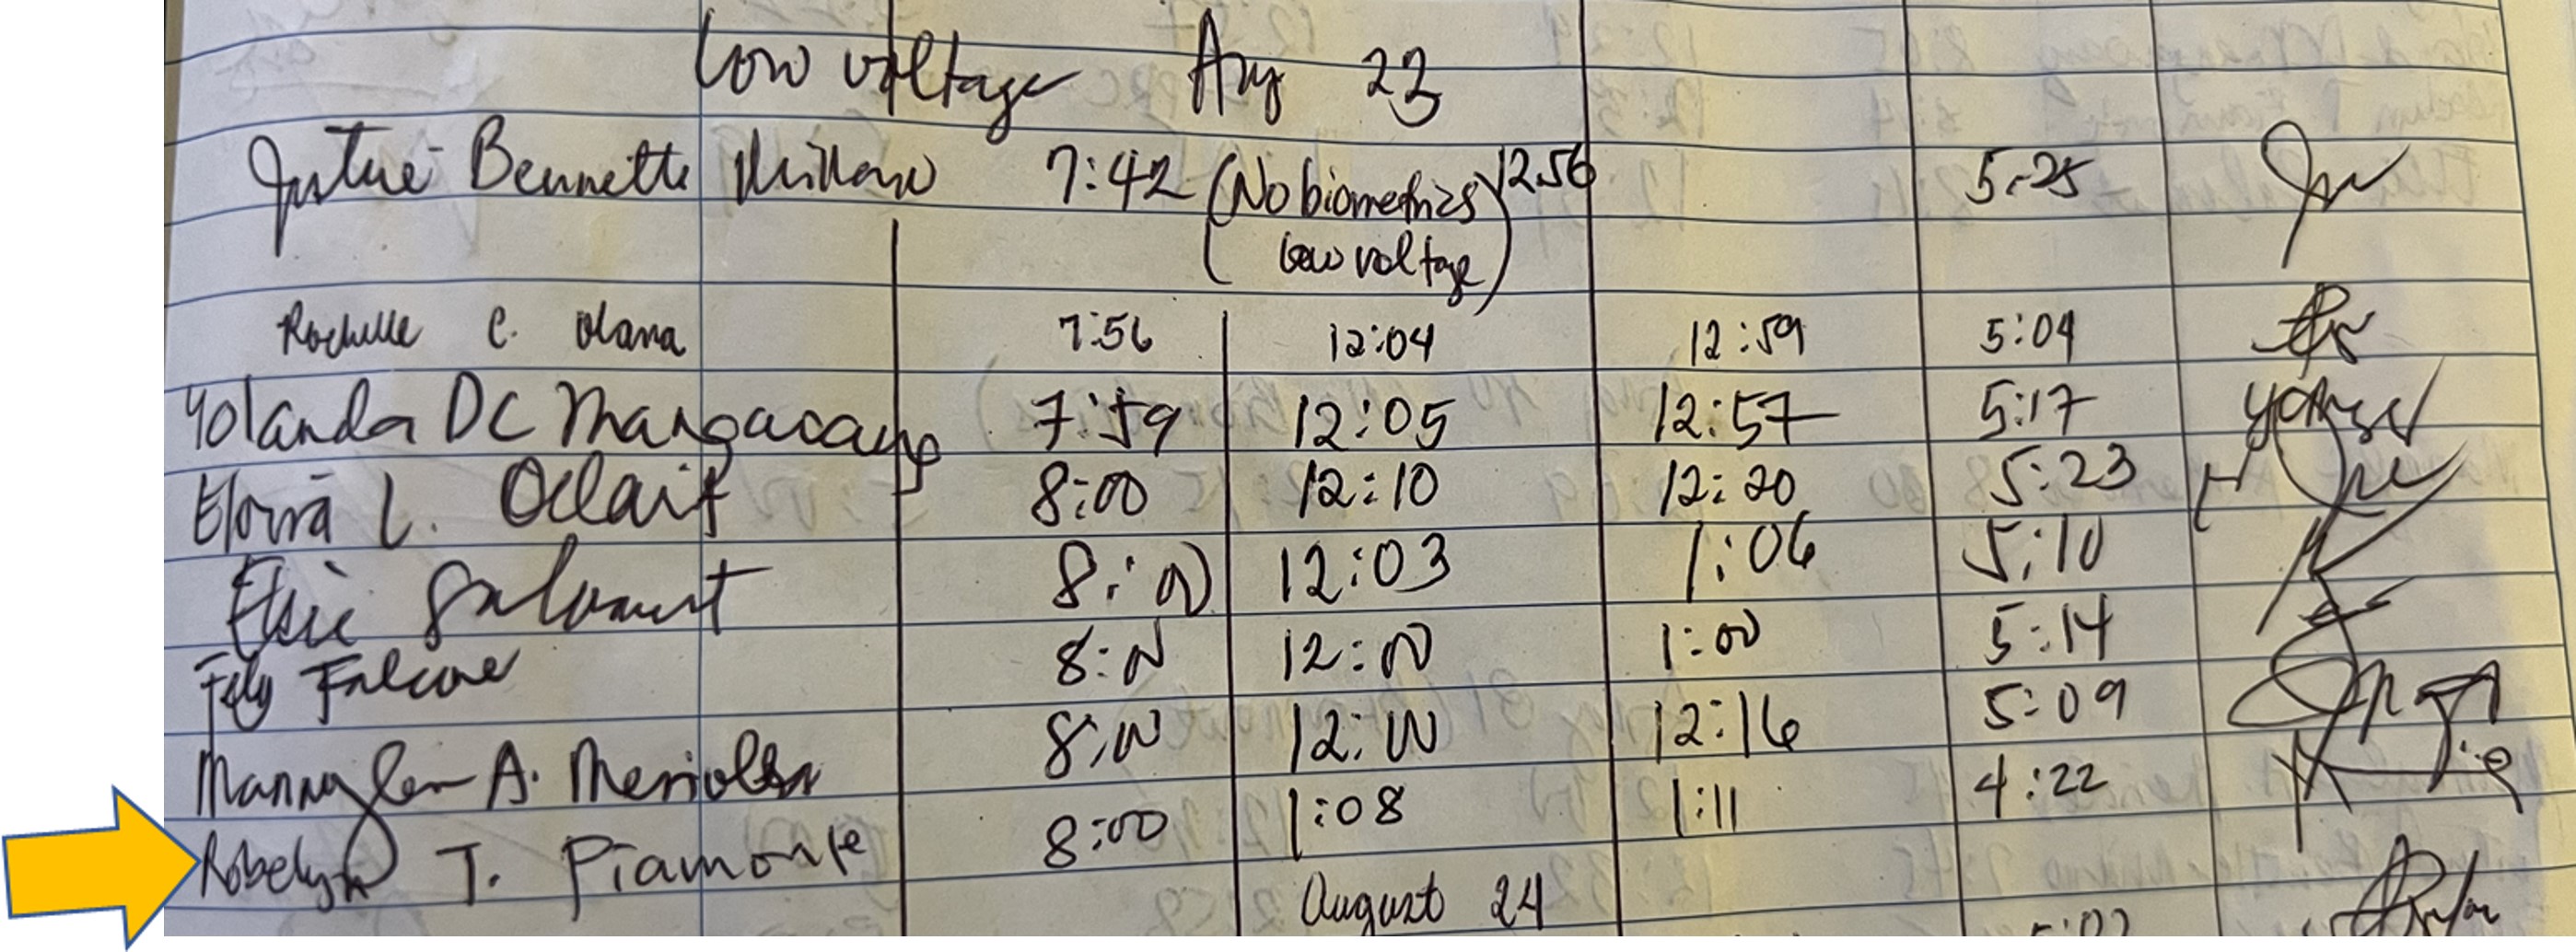 Low voltage Aug 23
Justine Bennette 7:42 (No biometrics 12:56 5:25
low voltage)
Rochelle C. Olana 7:56 12:04 12:59 5:04
Yolanda DC Mangacayo 7:59 12:05 12:57 5:17
L. 8:00 12:10 12:20 5:23
Elsie 8:00 12:03 1:06 5:10
Fely Falcone 8:00 12:00 1:00 5:14
A. 8:00 12:00 12:16 5:09
Robelyn T. Piamonte 8:00 1:08 1:11 4:22
August 24